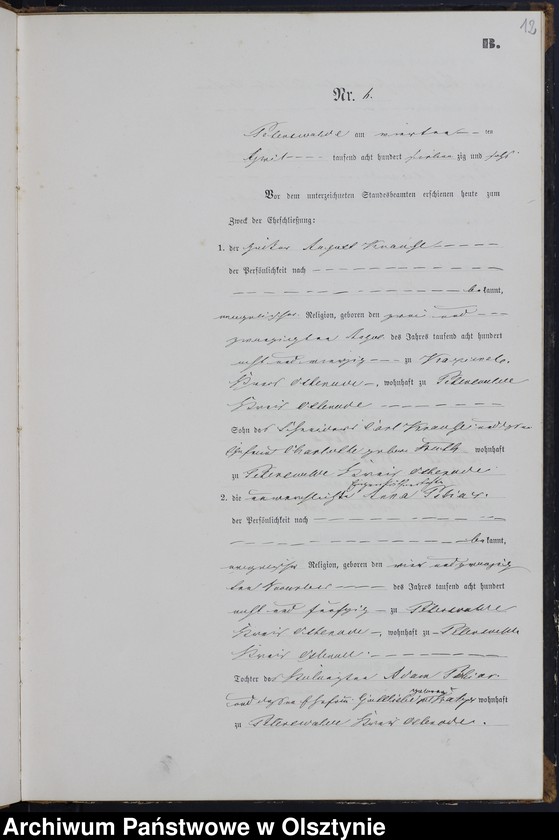 12
B.
Nr. 4.
Peterswalde am vierten ten
April tausend acht hundert sieben zig und sechs
Vor dem unterzeichneten Standesbeamten erschienen heute zum
Zweck der Eheschließung:
1. der August Krause
der Persönlichkeit nach
bekannt,
evangelischer Religion, geboren den zwei und
zwanzigsten des Jahres tausend acht hundert
acht und vierzig zu
Kreis Osterode, wohnhaft zu Peterswalde
Kreis Osterode
Sohn des Schneiders Carl Krause und dessen
Ehefrau Charlotte geboren wohnhaft
zu Peterswalde Kreis Osterode
2. die unverehelichte Anna Tobias.
der Persönlichkeit nach
bekannt,
evangelischer Religion, geboren den vier und zwanzig
sten des Jahres tausend acht hundert
acht und fünfzig zu Peterswalde
Kreis Osterode, wohnhaft zu Peterswalde
Kreis Osterode.
Tochter des Adam Tobias
und dessen Ehefrau Gottliebe geboren wohnhaft
zu Peterswalde Kreis Osterode.
Archiwum Państwowe w Olsztynie